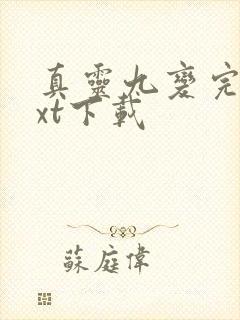 真靈九變完
xt下載
蘇庭偉